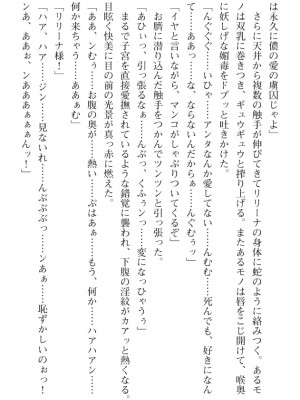 は永久に儂の愛の虜囚じゃよ」
　さらに天井から複数の触手が伸びてきてリリーナの身体に蛇のように絡みつく。あるモ
ノは双乳に巻きつき、ギュウギュウと搾り上げる。またあるモノは唇をこじ開けて、喉奥
に妖しげな媚毒をドプッと吐きかけた。
「んぐぐ……いひゃ……アンタなんか愛してない……んむむ……死んでも、好きになん
て……あぁっ……なるもんか……なならないんだから……んぐむぅっ」
「イヤと言いながら、マンコがしゃぶりついてくるぞ」
　お臍に潜り込んだ触手をつかんでツンツンと引っ張った。
「あひぃっ、引っ張るなぁ……んぶっ、くぅぅンっ……変になっひゃうぅ」
　まるで子宮を直接愛撫されているような錯覚に襲われ、下腹の淫紋がカアッと熱くなる。
目も眩く快美に目の前の光景が真っ赤に燃えた。
「ああ……ンむぅ……お腹の奥が……熱い……ぷはあぁ……もう、何か……ハアハアン……
何か来ちゃう……ああぁむ」
「リリーナ様！」
「ハァ、ハアー……ジン……見ないれ……んぷぷぷっ……ンあぁ……恥ずかしいのぉっ！
ンあ、ああぉ、ンああぁぁぁぁんッ！」